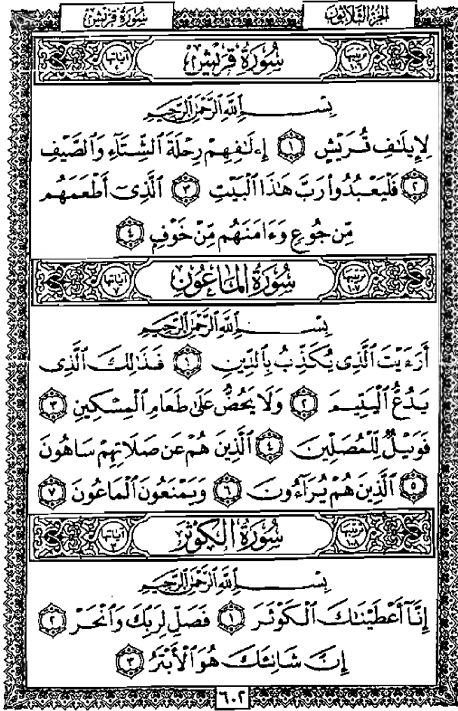 الجزء الثلاثون
سورة قريش
سُورَةُ قُرَيْشٍ
آياتها ٤
بِسْمِ اللَّهِ الرَّحْمَٰنِ الرَّحِيمِ
لِإِيلَٰفِ قُرَيْشٍ ١ إِۦلَٰفِهِمْ رِحْلَةَ ٱلشِّتَآءِ وَٱلصَّيْفِ
٢ فَلْيَعْبُدُوا۟ رَبَّ هَٰذَا ٱلْبَيْتِ ٣ ٱلَّذِىٓ أَطْعَمَهُم
مِّن جُوعٍ وَءَامَنَهُم مِّنْ خَوْفٍۭ ٤
سُورَةُ الْمَاعُونِ
آياتها ٧
بِسْمِ اللَّهِ الرَّحْمَٰنِ الرَّحِيمِ
أَرَءَيْتَ ٱلَّذِى يُكَذِّبُ بِٱلدِّينِ ١ فَذَٰلِكَ ٱلَّذِى
يَدُعُّ ٱلْيَتِيمَ ٢ وَلَا يَحُضُّ عَلَىٰ طَعَامِ ٱلْمِسْكِينِ ٣
فَوَيْلٌ لِّلْمُصَلِّينَ ٤ ٱلَّذِينَ هُمْ عَن صَلَاتِهِمْ سَاهُونَ
٥ ٱلَّذِينَ هُمْ يُرَآءُونَ ٦ وَيَمْنَعُونَ ٱلْمَاعُونَ ٧
سُورَةُ الْكَوْثَرِ
آياتها ٣
بِسْمِ اللَّهِ الرَّحْمَٰنِ الرَّحِيمِ
إِنَّآ أَعْطَيْنَٰكَ ٱلْكَوْثَرَ ١ فَصَلِّ لِرَبِّكَ وَٱنْحَرْ ٢
إِنَّ شَانِئَكَ هُوَ ٱلْأَبْتَرُ ٣
٦٠٢